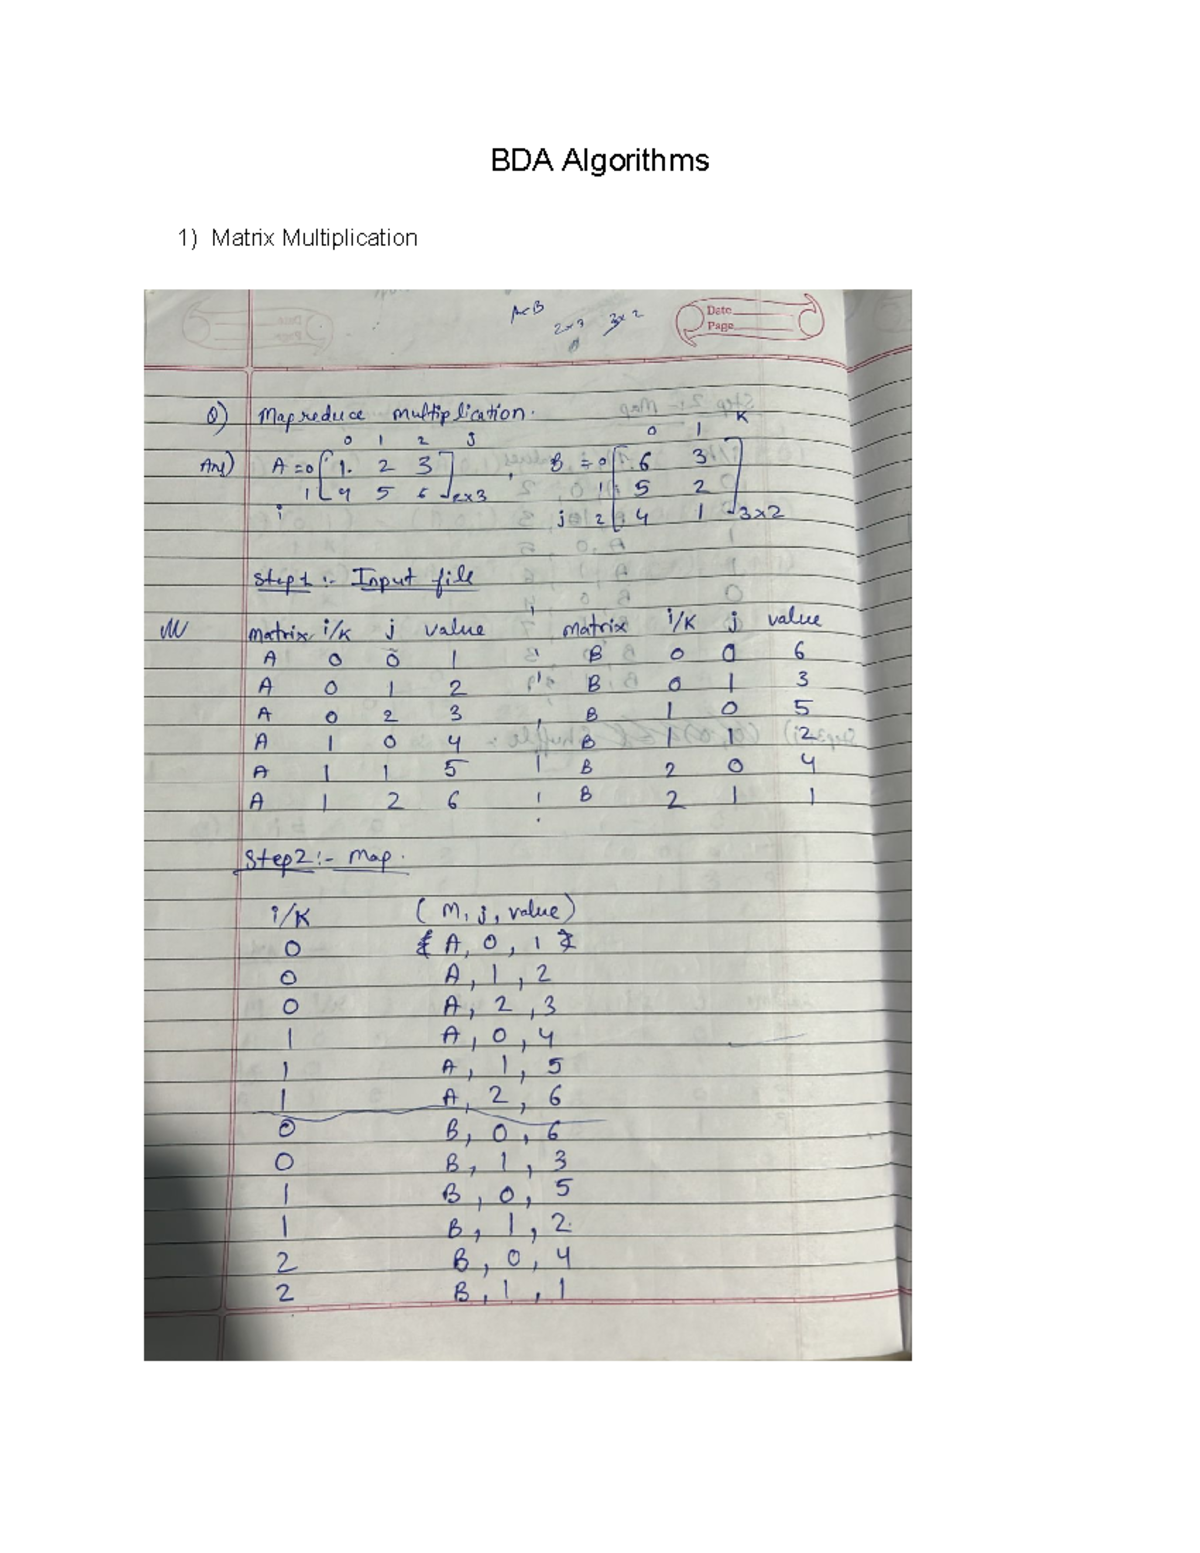 BDA Algorithms
1) Matrix Multiplication
A×B
2×3 3×2
Date
Page
Q) Mapreduce multiplication.
0 1 2 j 0 1 K
Ans) A = 0 [ 1. 2 3 ] , B = 0 [ 6 3 ]
1 [ 4 5 6 ] 2×3 1 [ 5 2 ]
i j 2 [ 4 1 ] 3×2
Step1 :- Input file
M matrix i/K j value matrix i/K j value
A 0 0 1 B 0 0 6
A 0 1 2 B 0 1 3
A 0 2 3 B 1 0 5
A 1 0 4 B 1 1 2
A 1 1 5 B 2 0 4
A 1 2 6 B 2 1 1
Step2 :- Map.
i/K (M, j, value)
0 { A, 0, 1 }
0 A, 1, 2
0 A, 2, 3
1 A, 0, 4
1 A, 1, 5
1 A, 2, 6
0 B, 0, 6
0 B, 1, 3
1 B, 0, 5
1 B, 1, 2.
2 B, 0, 4
2 B, 1, 1